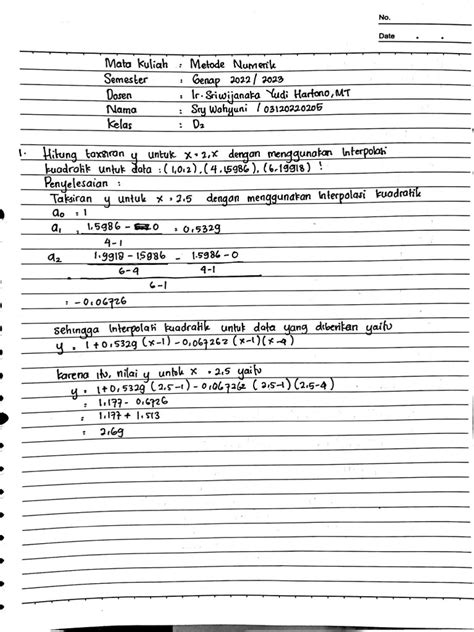 No.
Date
Mata Kuliah : Metode Numerik
Semester : Genap 2022 / 2023
Dosen : Ir. Sriwijanaka Yudi Hartono, MT
Nama : Sry Wahyuni / 03120220205
Kelas : D2
1. Hitung taksiran y untuk x = 2,x dengan menggunakan Interpolasi
kuadratik untuk data : (1,0,2), (4,15986), (6,19918) !
Penyelesaian :
Taksiran y untuk x = 2.5 dengan menggunakan Interpolasi kuadratik
a0 = 1
a1 = 1.5986 - 0 = 0,5329
4-1
a2 1.9918 - 15986 - 1.5986 - 0
6-4 4-1
6-1
= -0,06726
sehingga Interpolasi kuadratik untuk data yang diberikan yaitu
y = 1+0,5329 (x-1) - 0,067262 (x-1)(x-4)
karena itu, nilai y untuk x = 2.5 yaitu
y = 1+0,5329 (2.5-1) - 0,067262 (2.5-1)(2.5-4)
= 1.177 - 0,6726
= 1.177 + 1.513
= 2.69